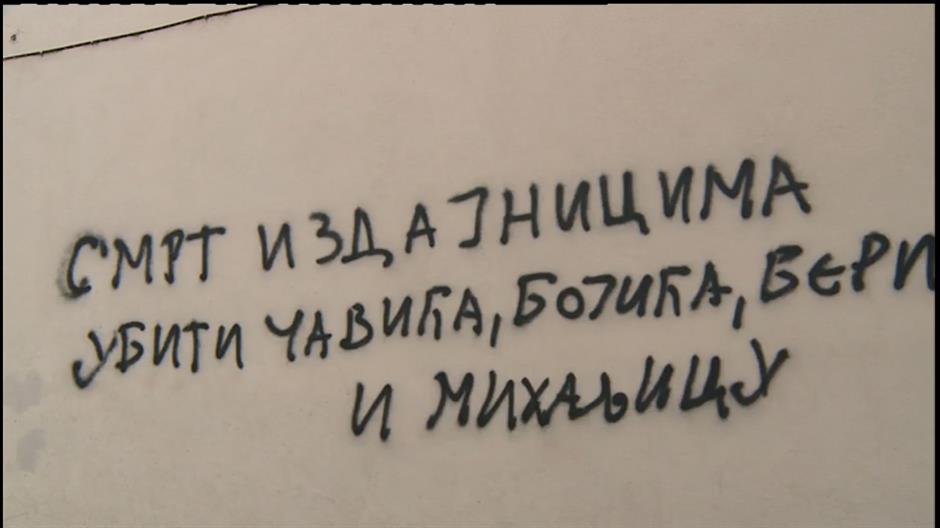 СМРТ ИЗДАЈНИЦИМА
УБИТИ ЧАВИЋА, БОЈИЋА,
И МИХАЉИЦУ